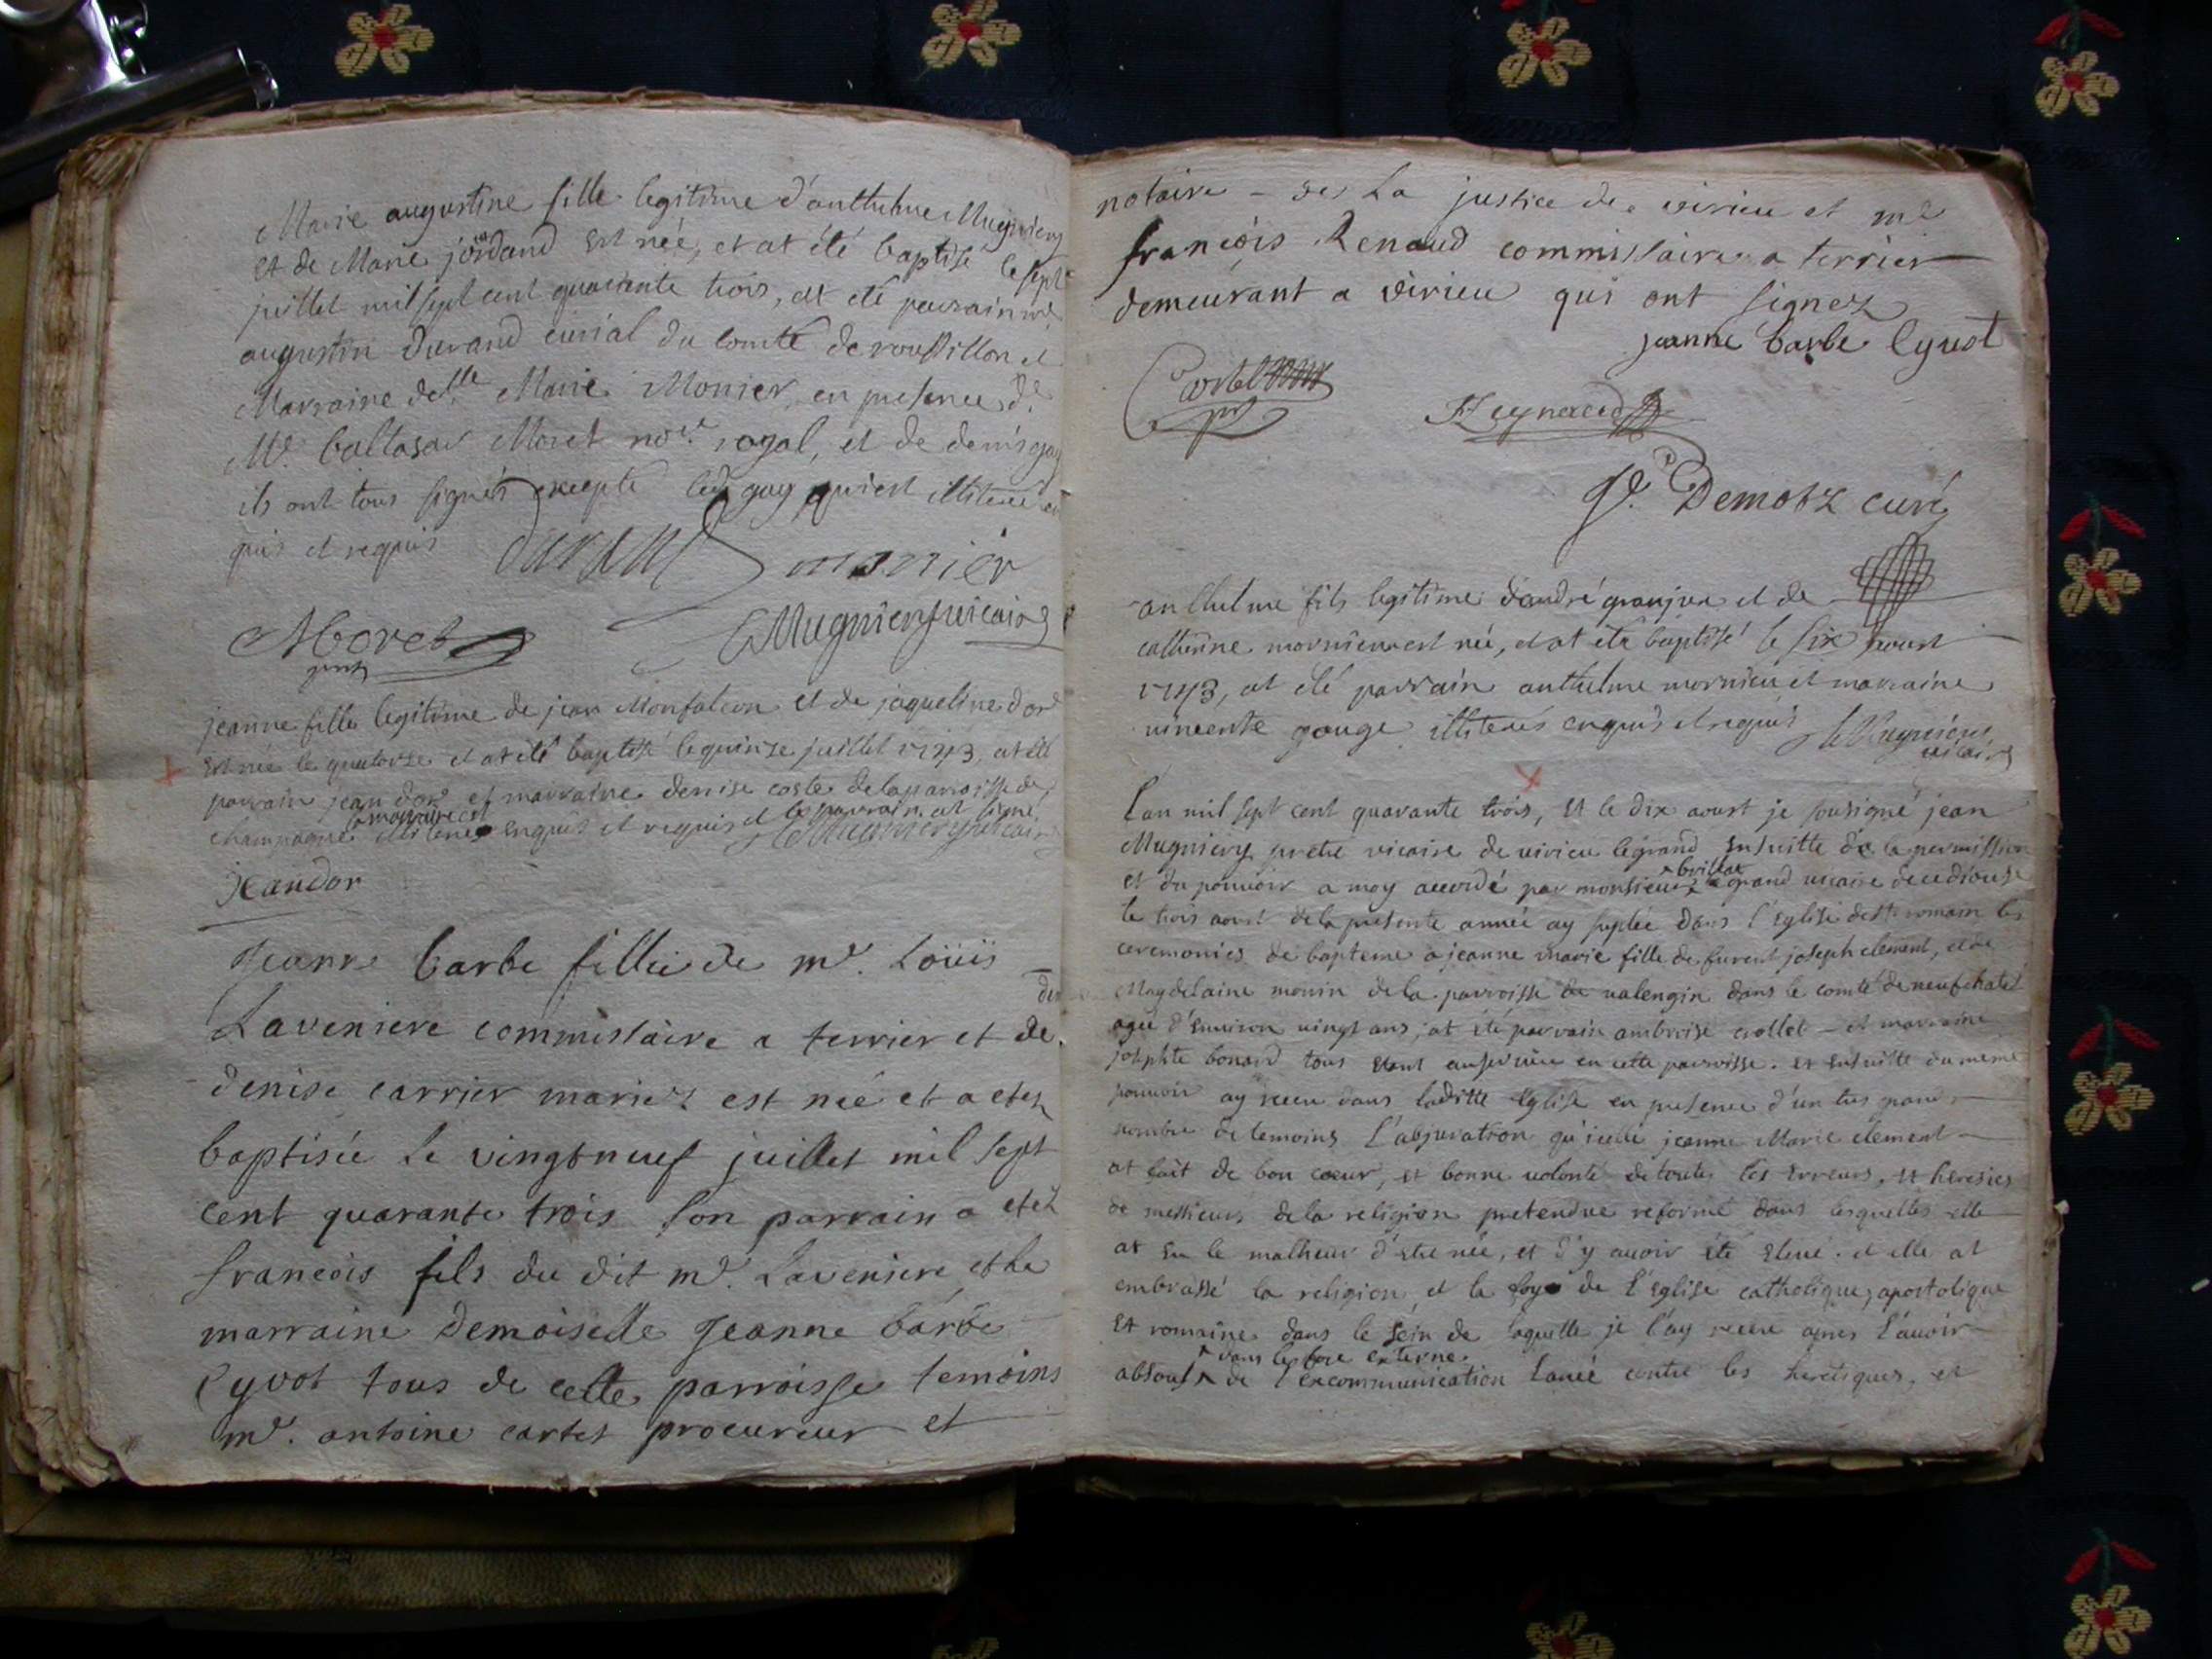 Marie augustine fille legitime d'anthelme Mugniery
et de Marie jordand est née, et at été baptisé le sept
juillet mil sept cent quarante trois, at eté parrain mr
augustin durand curial du comté de roussillon et
Marraine delle Marie Monier, en presence de
Mr. baltasar Moret nore. royal, et de denis gay
ils ont tous signés excepté led gay qui est illiteré en
quis et requis durand monier
Moret Mugniery vicaire
jeanne fille legitime de jean Monfalcon et de jaqueline dor
est née le quatorze et at eté baptisé le quinze juillet 1743, at eté
parrain jean dor et marraine denise coste de la paroisse de
champagne la marraine est illiteré enquis et requis et le parrain at signé Mugniery vicaire
Jeandor
Jeanne barbe fillie de mr. Loüis
Laveniere commissaire a terrier et de
denise carrier mariez est née et a etez
baptisée le vingt neuf juillet mil sept
cent quarante trois son parrain a etez
francois fils du dit mr. Laveniere et la
marraine Demoiselle Jeanne barbe
Cyvot tous de cette parroisse temoins
mr. antoine cartet procureur et
notaire - de la justice de virieu et mr
francois Renaud commissaire a terrier
demeurant a virieu qui ont signez
jeanne barbe Cyvot
Reynaud
Demotz curé
anthelme fils legitime d'andré granjean et de
catherine mornieu est née, et at été baptisé le six aoust
1743, at eté parrain anthelme mornieu et marraine
vincente gouge illiterés enquis et requis Mugniery
vicaire
L'an mil sept cent quarante trois, et le dix aoust je sousigné jean
Mugniery pretre vicaire de virieu le grand ensuitte de la permission
et du pouvoir a moy accordé par monsieur brillat grand vicaire
le trois aoust de la presente année ay suplée dans l'Eglise de st romain les
ceremonies de bapteme a jeanne marie fille de furent joseph clement, et de
Magdelaine mouin de la parroisse de valengin dans le comté de neufchatel
agée d'environ vingt ans, at été parrain ambroise crollet - et marraine
josephte bonard tous etant au service en cette parroisse. et ensuitte du meme
pouvoir ay receu dans laditte Eglise en presence d'un tres grand
nombre de temoins L'abjuration qu'icelle jeanne Marie clement
at fait de bon coeur, et bonne volonté de toutes les erreurs, et heresies
de messieurs de la religion pretendue reformé dans lesquelles elle
at eu le malheur d'etre née, et d'y avoir été elevé. et elle at
embrassé la religion, et la foy de l'Eglise catholique, apostolique
et romaine dans le sein de laquelle je l'ay receu apres l'avoir
absout dans le fore externe. de l'excommunication lancé contre les heretiques, et